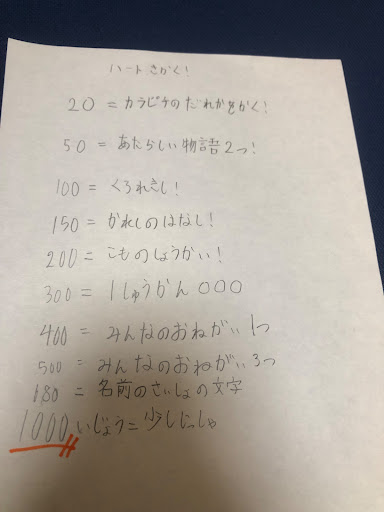 ハートきかく!
20 = カラピチのだれかをかく!
50 = あたらしい物語2つ!
100 = くろれきし!
150 = かれしのはなし!
200 = こものしょうかい!
300 = 1しゅうかん○○○
400 = みんなのおねがい1つ
500 = みんなのおねがい3つ
180 = 名前のさいしょの文字
1000いじょう= 少しじっしゃ